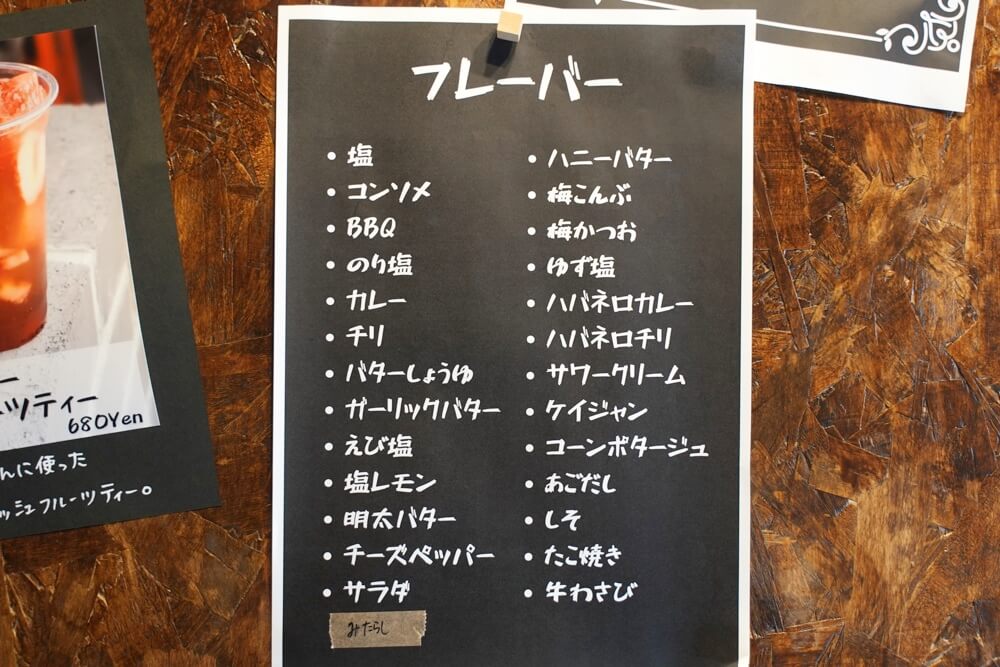 フレーバー
・塩
・コンソメ
・BBQ
・のり塩
・カレー
・チリ
・バターしょうゆ
・ガーリックバター
・えび塩
・塩レモン
・明太バター
・チーズペッパー
・サラダ
みたらし
・ハニーバター
・梅こんぶ
・梅かつお
・ゆず塩
・ハバネロカレー
・ハバネロチリ
・サワークリーム
・ケイジャン
・コーンポタージュ
・あごだし
・しそ
・たこ焼き
・牛わさび
ー
ツティー
680Yen
んに使った
ッシュフルーツティー。